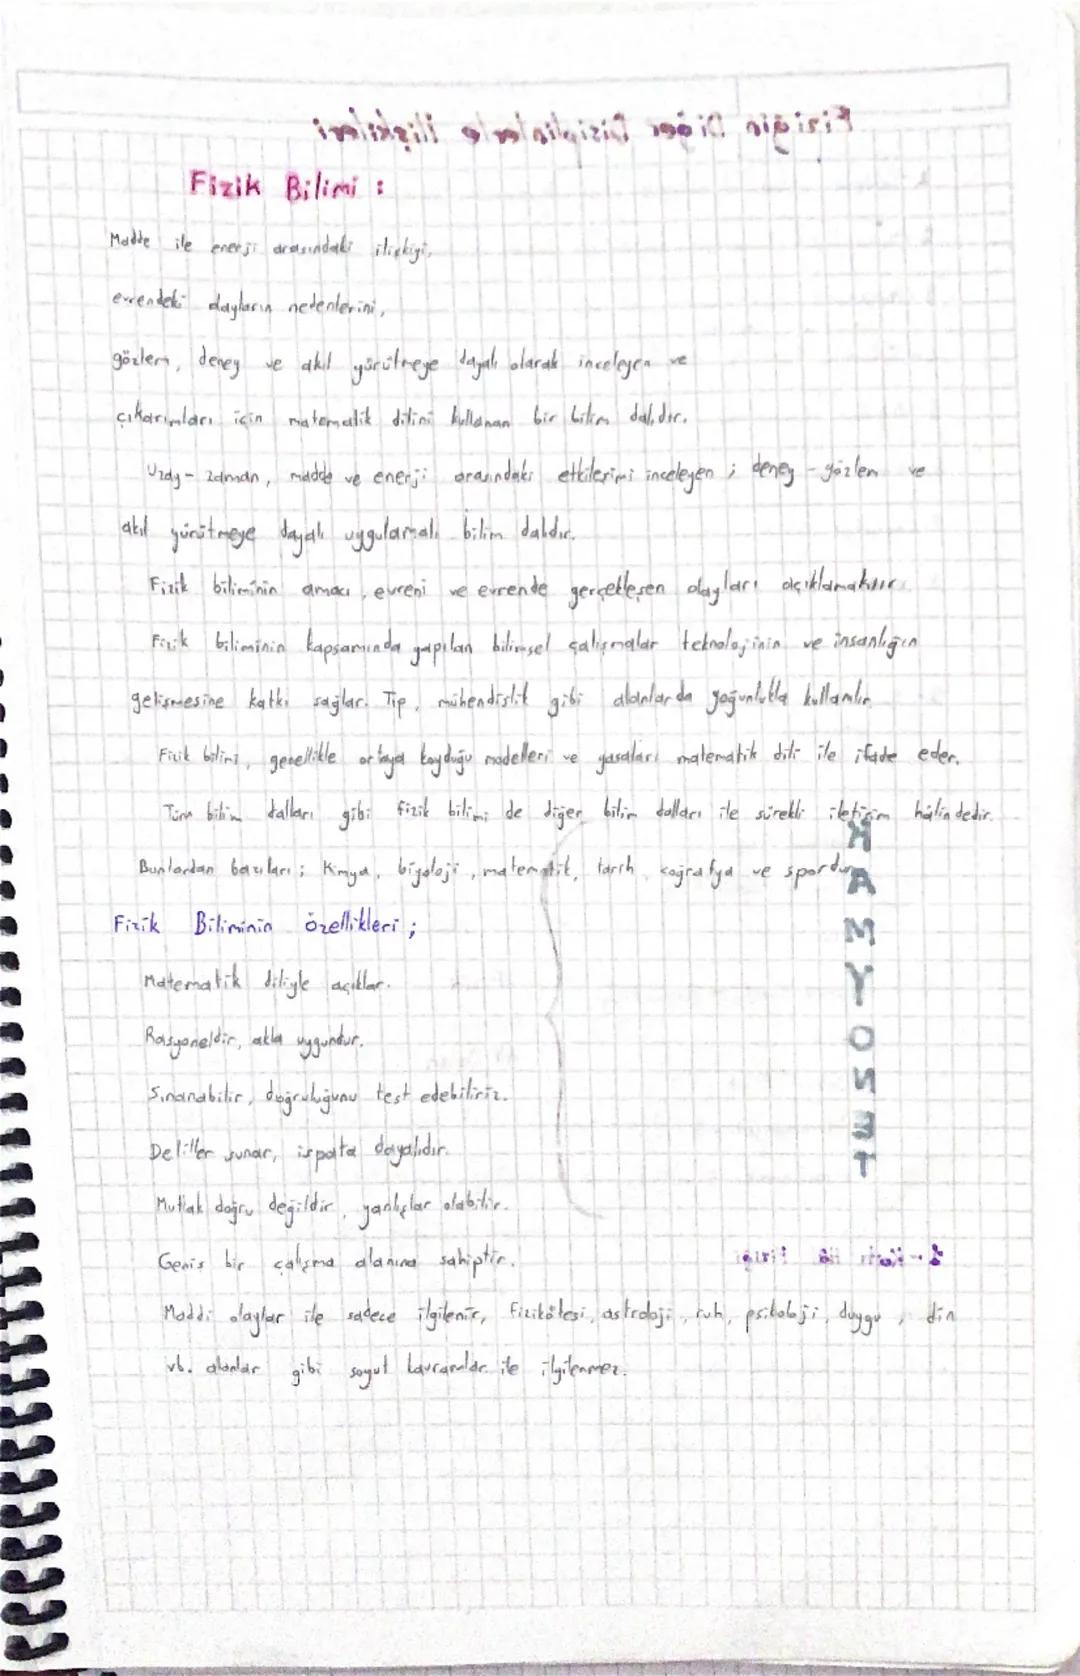 Fizik Bilimi :
Madde ile enerji arasındaki ilişkiyi,
evrendeki olayların nedenlerini,
gözlem, deney ve akıl yürütmeye dayalı olarak inceleyen ve
çıkarımları için matematik dilini kullanan bir bilim dalıdır.
Uzay-zaman, madde ve enerji arasındaki etkilerimi inceleyen ; deney - gözlem ve
akıl yürütmeye dayalı uygulamalı bilim dalıdır.
Fizik biliminin amacı, evreni ve evrende gerçekleşen olayları açıklamaktır.
Fizik biliminin kapsamında yapılan bilimsel çalışmalar teknolojinin ve insanlığın
gelişmesine katkı sağlar. Tıp, mühendislik gibi alanlarda yoğunlukla kullanılır.
Fizik bilimi, genellikle ortaya koyduğu modelleri ve yasaları matematik dili ile ifade eder.
Tüm bilim dalları gibi fizik bilimi de diğer bilim dalları ile sürekli iletişim hâlindedir.
Bunlardan bazıları; Kimya, biyoloji, matematik, tarih, coğrafya ve spordur.
Fizik Biliminin özellikleri ;
Matematik diliyle açıklar.
Rasyoneldir, akla uygundur.
Sınanabilir, doğruluğunu test edebiliriz.
Deliller sunar, ispata dayalıdır.
Mutlak doğru değildir, yanlışlar olabilir.
Geniş bir çalışma alanına sahiptir.
Maddi olaylar ile sadece ilgilenir, fizikötesi, astroloji, ruh, psikoloji, duygu, din
vb. alanlar gibi soyut kavramlar ile ilgilenmez.